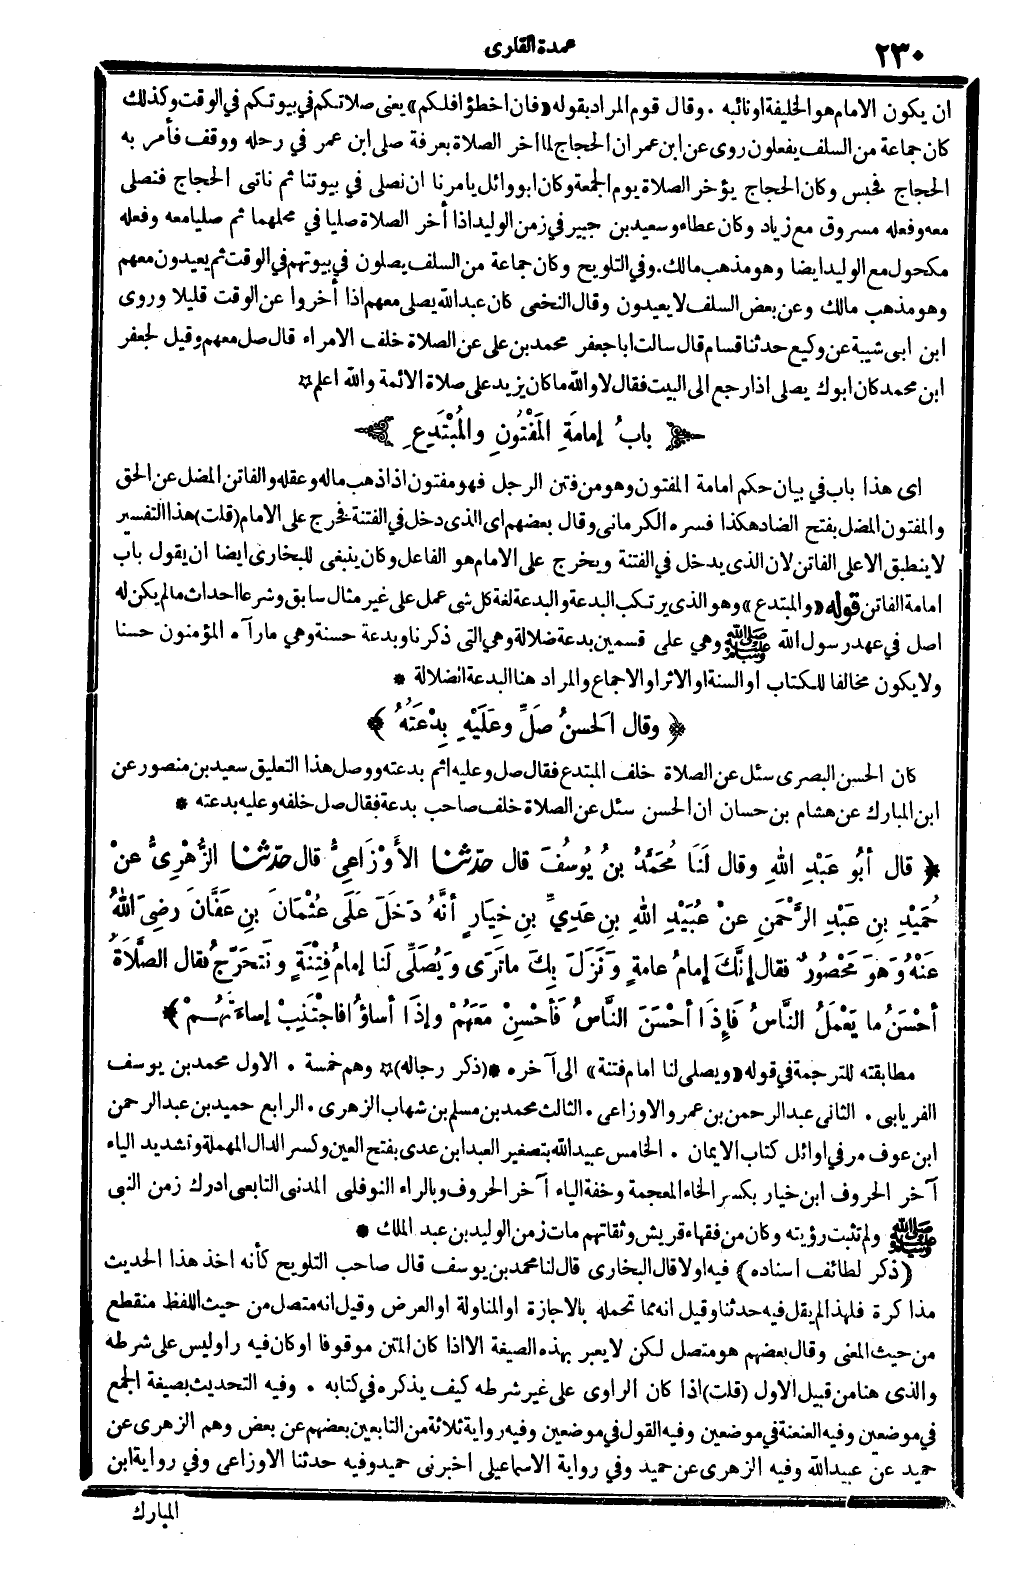 ٢٣٠
عمدة القارى
ان يكون الامام هو الخليفة او نائبه . وقال قوم المراد بقوله «فان اخطؤا فلكم» يعنى صلاتكم في بيوتكم في الوقت وكذلك
كان جماعة من السلف يفعلون روى عن ابن عمر ان الحجاج لما اخر الصلاة بعرفة صلى ابن عمر في رحله ووقف فأمر به
الحجاج فحبس وكان الحجاج يؤخر الصلاة يوم الجمعة وكان ابو وائل يامرنا ان نصلى في بيوتنا ثم ناتى الحجاج فنصلى
معه وفعله مسروق مع زياد وكان عطاء وسعيد بن جبير في زمن الوليد اذا أخر الصلاة صليا في محلهما ثم صليا معه وفعله
مكحول مع الوليد ايضا وهو مذهب مالك . وفي التلويح وكان جماعة من السلف يصلون في بيوتهم في الوقت ثم يعيدون معهم
وهو مذهب مالك وعن بعض السلف لا يعيدون وقال النخعى كان عبد الله يصلى معهم اذا أخروا عن الوقت قليلا وروى
ابن ابى شيبة عن وكيع حدثنا قسام قال سالت ابا جعفر محمد بن على عن الصلاة خلف الامراء قال صل معهم وقيل لجعفر
ابن محمد كان ابوك يصلى اذا رجع الى البيت فقال لا والله ما كان يزيد على صلاة الائمة والله اعلم ☆
بابُ إمامةِ المَفْتُونِ والمُبْتَدِعِ
اى هذا باب في بيان حكم امامة المفتون وهو من فتن الرجل فهو مفتون اذا ذهب ماله وعقله والفاتن المضل عن الحق
والمفتون المضل بفتح الضاد هكذا فسره الكرمانى وقال بعضهم اى الذى دخل في الفتنة فخرج على الامام (قلت) هذا التفسير
لا ينطبق الا على الفاتن لان الذى يدخل في الفتنة ويخرج على الامام هو الفاعل وكان ينبغى للبخارى ايضا ان يقول باب
امامة الفاتن قوله «والمبتدع» وهو الذى يرتكب البدعة والبدعة لغة كل شى عمل على غير مثال سابق وشرعا احداث ما لم يكن له
اصل في عهد رسول الله ﷺ وهي على قسمين بدعة ضلالة وهي التى ذكرنا وبدعة حسنة وهي ما رآه المؤمنون حسنا
ولا يكون مخالفا للكتاب او السنة او الاثر او الاجماع والمراد هنا البدعة الضلالة *
﴿ وقال الحسنُ صَلِّ وعَلَيْهِ بِدْعَتُهُ ﴾
كان الحسن البصرى سئل عن الصلاة خلف المبتدع فقال صل وعليه اثم بدعته ووصل هذا التعليق سعيد بن منصور عن
ابن المبارك عن هشام بن حسان ان الحسن سئل عن الصلاة خلف صاحب بدعة فقال صل خلفه وعليه بدعته *
﴿ قال أبُو عَبْدِ اللهِ وقال لَنَا مُحَمَّدُ بنُ يُوسُفَ قال حدّثنا الأوْزَاعِيُّ قال حدّثنا الزُّهْرِيُّ عنْ
حُمَيْدِ بنِ عَبْدِ الرَّحْمَنِ عنْ عُبَيْدِ اللهِ بنِ عَدِيِّ بنِ خِيَارٍ أنَّهُ دَخَلَ عَلَى عُثْمَانَ بنِ عَفَّانَ رضِيَ اللهُ
عَنْهُ وَهوَ مَحْصُورٌ فقال إنَّكَ إمامُ عامةٍ وَنَزَلَ بِكَ ما تَرَى ويُصَلِّى لَنا إمامُ فِتْنَةٍ ونَتحَرّجُ فقال الصَّلَاةُ
أحْسَنُ ما يَعْمَلُ النَّاسُ فَإِذَا أحْسَنَ النَّاسُ فَأحْسِنْ مَعَهُمْ وإذَا أساؤُا فاجْتَنِبْ إساءَتَهُمْ ﴾
مطابقته للترجمة في قوله «ويصلى لنا امام فتنة» الى آخره *(ذكر رجاله)☆ وهم خمسة . الاول محمد بن يوسف
الفريابى . الثانى عبد الرحمن بن عمرو الاوزاعى . الثالث محمد بن مسلم بن شهاب الزهرى . الرابع حميد بن عبد الرحمن
ابن عوف مر في اوائل كتاب الايمان . الخامس عبيد الله بتصغير العبد ابن عدى بفتح العين وكسر الدال المهملة وتشديد الياء
آخر الحروف ابن خيار بكسر الخاء المعجمة وخفة الياء آخر الحروف وبالراء النوفلى المدنى التابعى ادرك زمن النبى
ﷺ ولم تثبت رؤيته وكان من فقهاء قريش وثقاتهم مات زمن الوليد بن عبد الملك *
(ذكر لطائف اسناده) فيه اولا قال البخارى قال لنا محمد بن يوسف قال صاحب التلويح كأنه اخذ هذا الحديث
مذاكرة فلهذا لم يقل فيه حدثنا وقيل انه مما تحمله بالاجازة او المناولة او العرض وقيل انه متصل من حيث اللفظ منقطع
من حيث المعنى وقال بعضهم هو متصل لكن لا يعبر بهذه الصيغة الا اذا كان المتن موقوفا او كان فيه راو ليس على شرطه
والذى هنا من قبيل الاول (قلت) اذا كان الراوى على غير شرطه كيف يذكره في كتابه . وفيه التحديث بصيغة الجمع
في موضعين وفيه العنعنة في موضعين وفيه القول في موضعين وفيه رواية ثلاثة من التابعين بعضهم عن بعض وهم الزهرى عن
حميد عن عبيد الله وفيه الزهرى عن حميد وفي رواية الاسماعيلى اخبرنى حميد وفيه حدثنا الاوزاعى وفي رواية ابن
المبارك